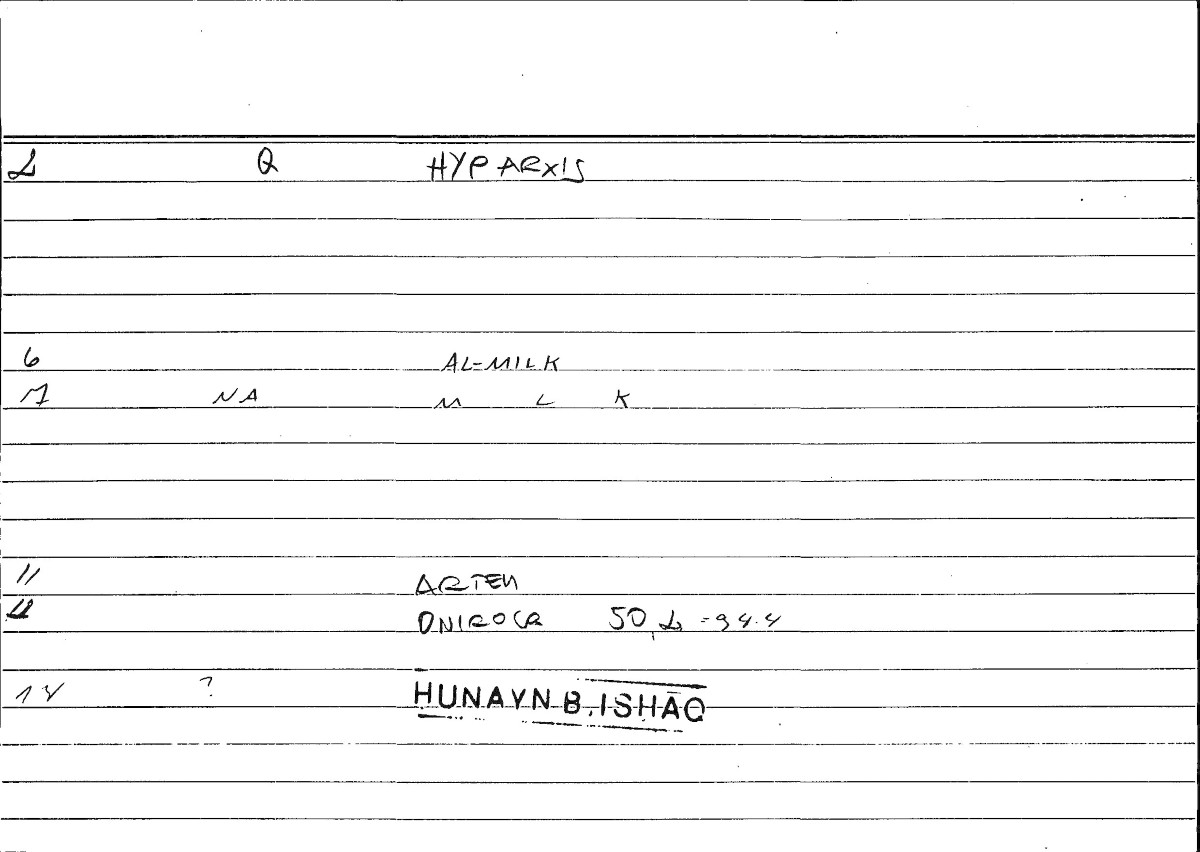 Q HYPARXIS
6 AL-MILK
7 NA M L K
11 ARTEM
ONIROCR 50, 2-94.4
14 ? HUNAYN B. ISHĀQ